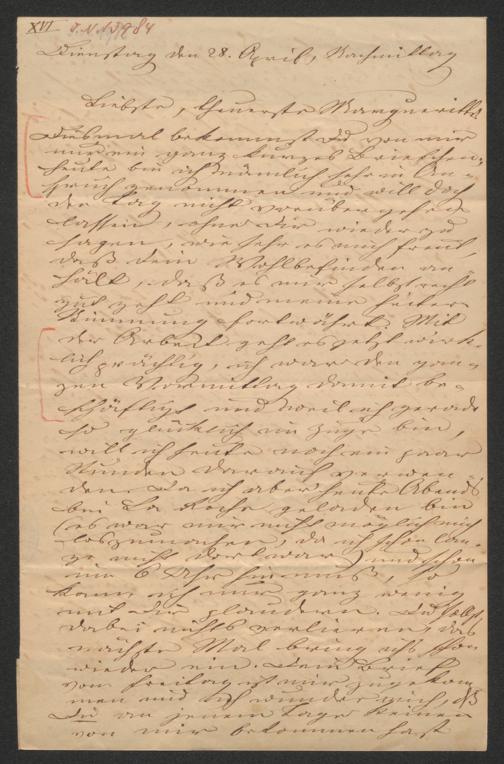 XVI J.N. 15984
Dienstag den 28. April, Nachmittag
Liebste, theuerste Margueritte!
Diesmal bekommst Du von mir
nur ein ganz kurzes Briefchen,
heute bin ich nämlich sehr in An-
spruch genommen und will doch
den Tag nicht vorübergehen
lassen, ohne Dir wieder zu
sagen, wie sehr es mich freut,
daß Dein Wohlbefinden an-
hält, daß es mir selbst recht
gut geht und meine heitere
Stimmung fortwährt. Mit
der Arbeit geht es jetzt wirk-
lich prächtig, ich war den gan-
zen Vormittag damit be-
schäftigt und weil ich gerade
so glücklich im Zuge bin,
will ich heute noch ein paar
Stunden darauf verwen-
den. Da ich aber heute Abends
bei La Roche geladen bin
(es war mir nicht möglich mich
loszumachen, da ich schon lan-
ge nicht dort war) und schon
um 6 Uhr hin muß, so
kann ich nur ganz wenig
mit Dir plaudern. Du sollst
dabei nichts verlieren, das
nächste Mal bring ich's schon
wieder ein. Dein Brief
vom Freitag ist mir zugekom-
men und ich wundere mich, daß
Du an jenem Tage keinen
von mir bekommen hast